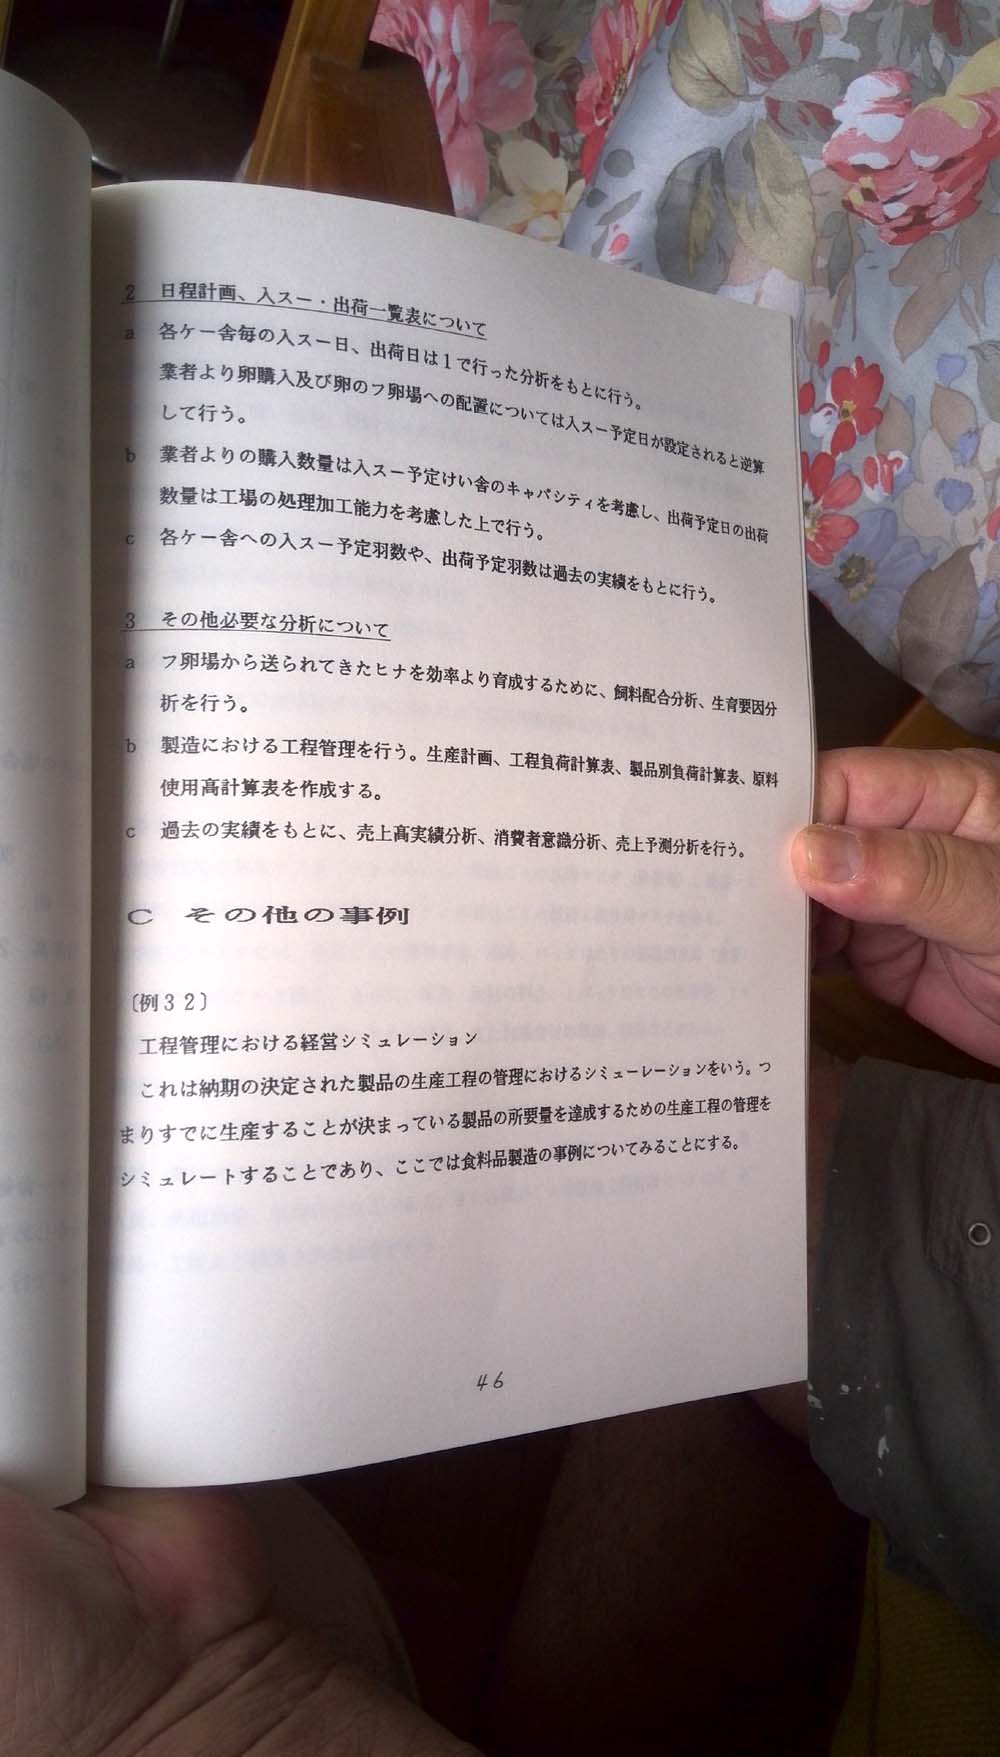 2 日程計画、入スー・出荷一覧表について
a 各ケー舎毎の入スー日、出荷日は1で行った分析をもとに行う。
業者より卵購入及び卵のフ卵場への配置については入スー予定日が設定されると逆算
して行う。
b 業者よりの購入数量は入スー予定けい舎のキャパシティを考慮し、出荷予定日の出荷
数量は工場の処理加工能力を考慮した上で行う。
c 各ケー舎への入スー予定羽数や、出荷予定羽数は過去の実績をもとに行う。
3 その他必要な分析について
a フ卵場から送られてきたヒナを効率より育成するために、飼料配合分析、生育要因分
析を行う。
b 製造における工程管理を行う。生産計画、工程負荷計算表、製品別負荷計算表、原料
使用高計算表を作成する。
c 過去の実績をもとに、売上高実績分析、消費者意識分析、売上予測分析を行う。
C その他の事例
〔例32〕
工程管理における経営シミュレーション
これは納期の決定された製品の生産工程の管理におけるシミューレーションをいう。つ
まりすでに生産することが決まっている製品の所要量を達成するための生産工程の管理を
シミュレートすることであり、ここでは食料品製造の事例についてみることにする。
46